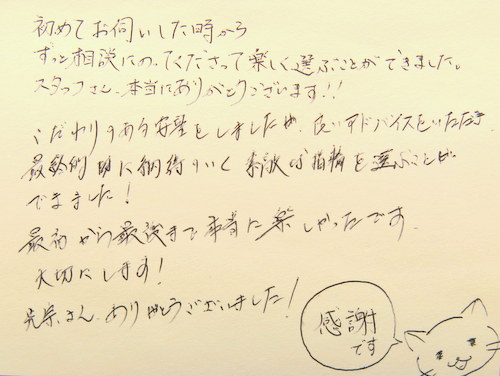 初めてお伺いした時から
ずっと相談にのってくださって楽しく選ぶことができました。
スタッフさん、本当にありがとうございます!!
こだわりのある要望をしましたが、良いアドバイスをいただき
最終的に納得のいく素敵な指輪を選ぶことが
できました!
最初から最後まで本当に楽しかったです。
大切にします!
さん、ありがとうございました!
感謝
です